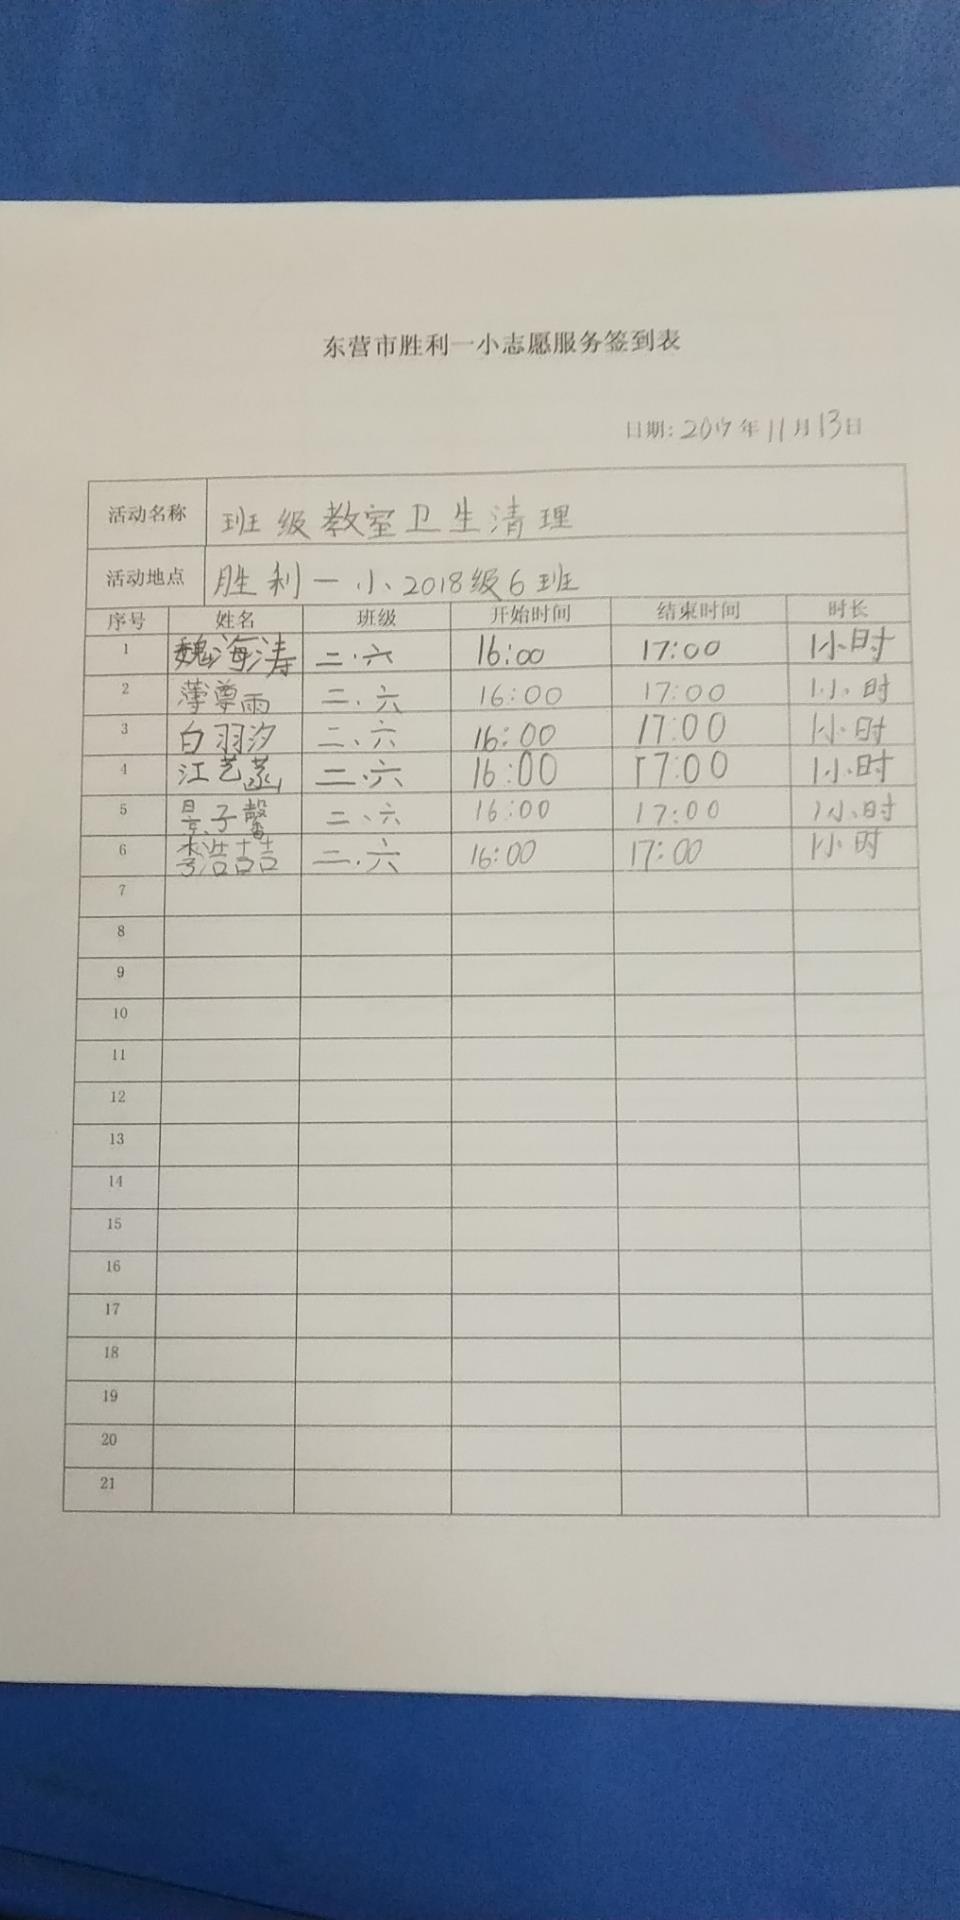 东营市胜利一小志愿服务签到表
日期: 2019年11月13日
活动名称 班级教室卫生清理
活动地点 胜利一小、2018级6班
序号 姓名 班级 开始时间 结束时间 时长
1 魏海涛 二·六 16:00 17:00 1小时
2 薄尊雨 二.六 16:00 17:00 1小时
3 白羽汐 二、六 16:00 17:00 1小时
4 江艺菡 二.六 16:00 17:00 1小时
5 景子馨 二、六 16:00 17:00 1小时
6 李浩喆 二.六 16:00 17:00 1小时
7
8
9
10
11
12
13
14
15
16
17
18
19
20
21